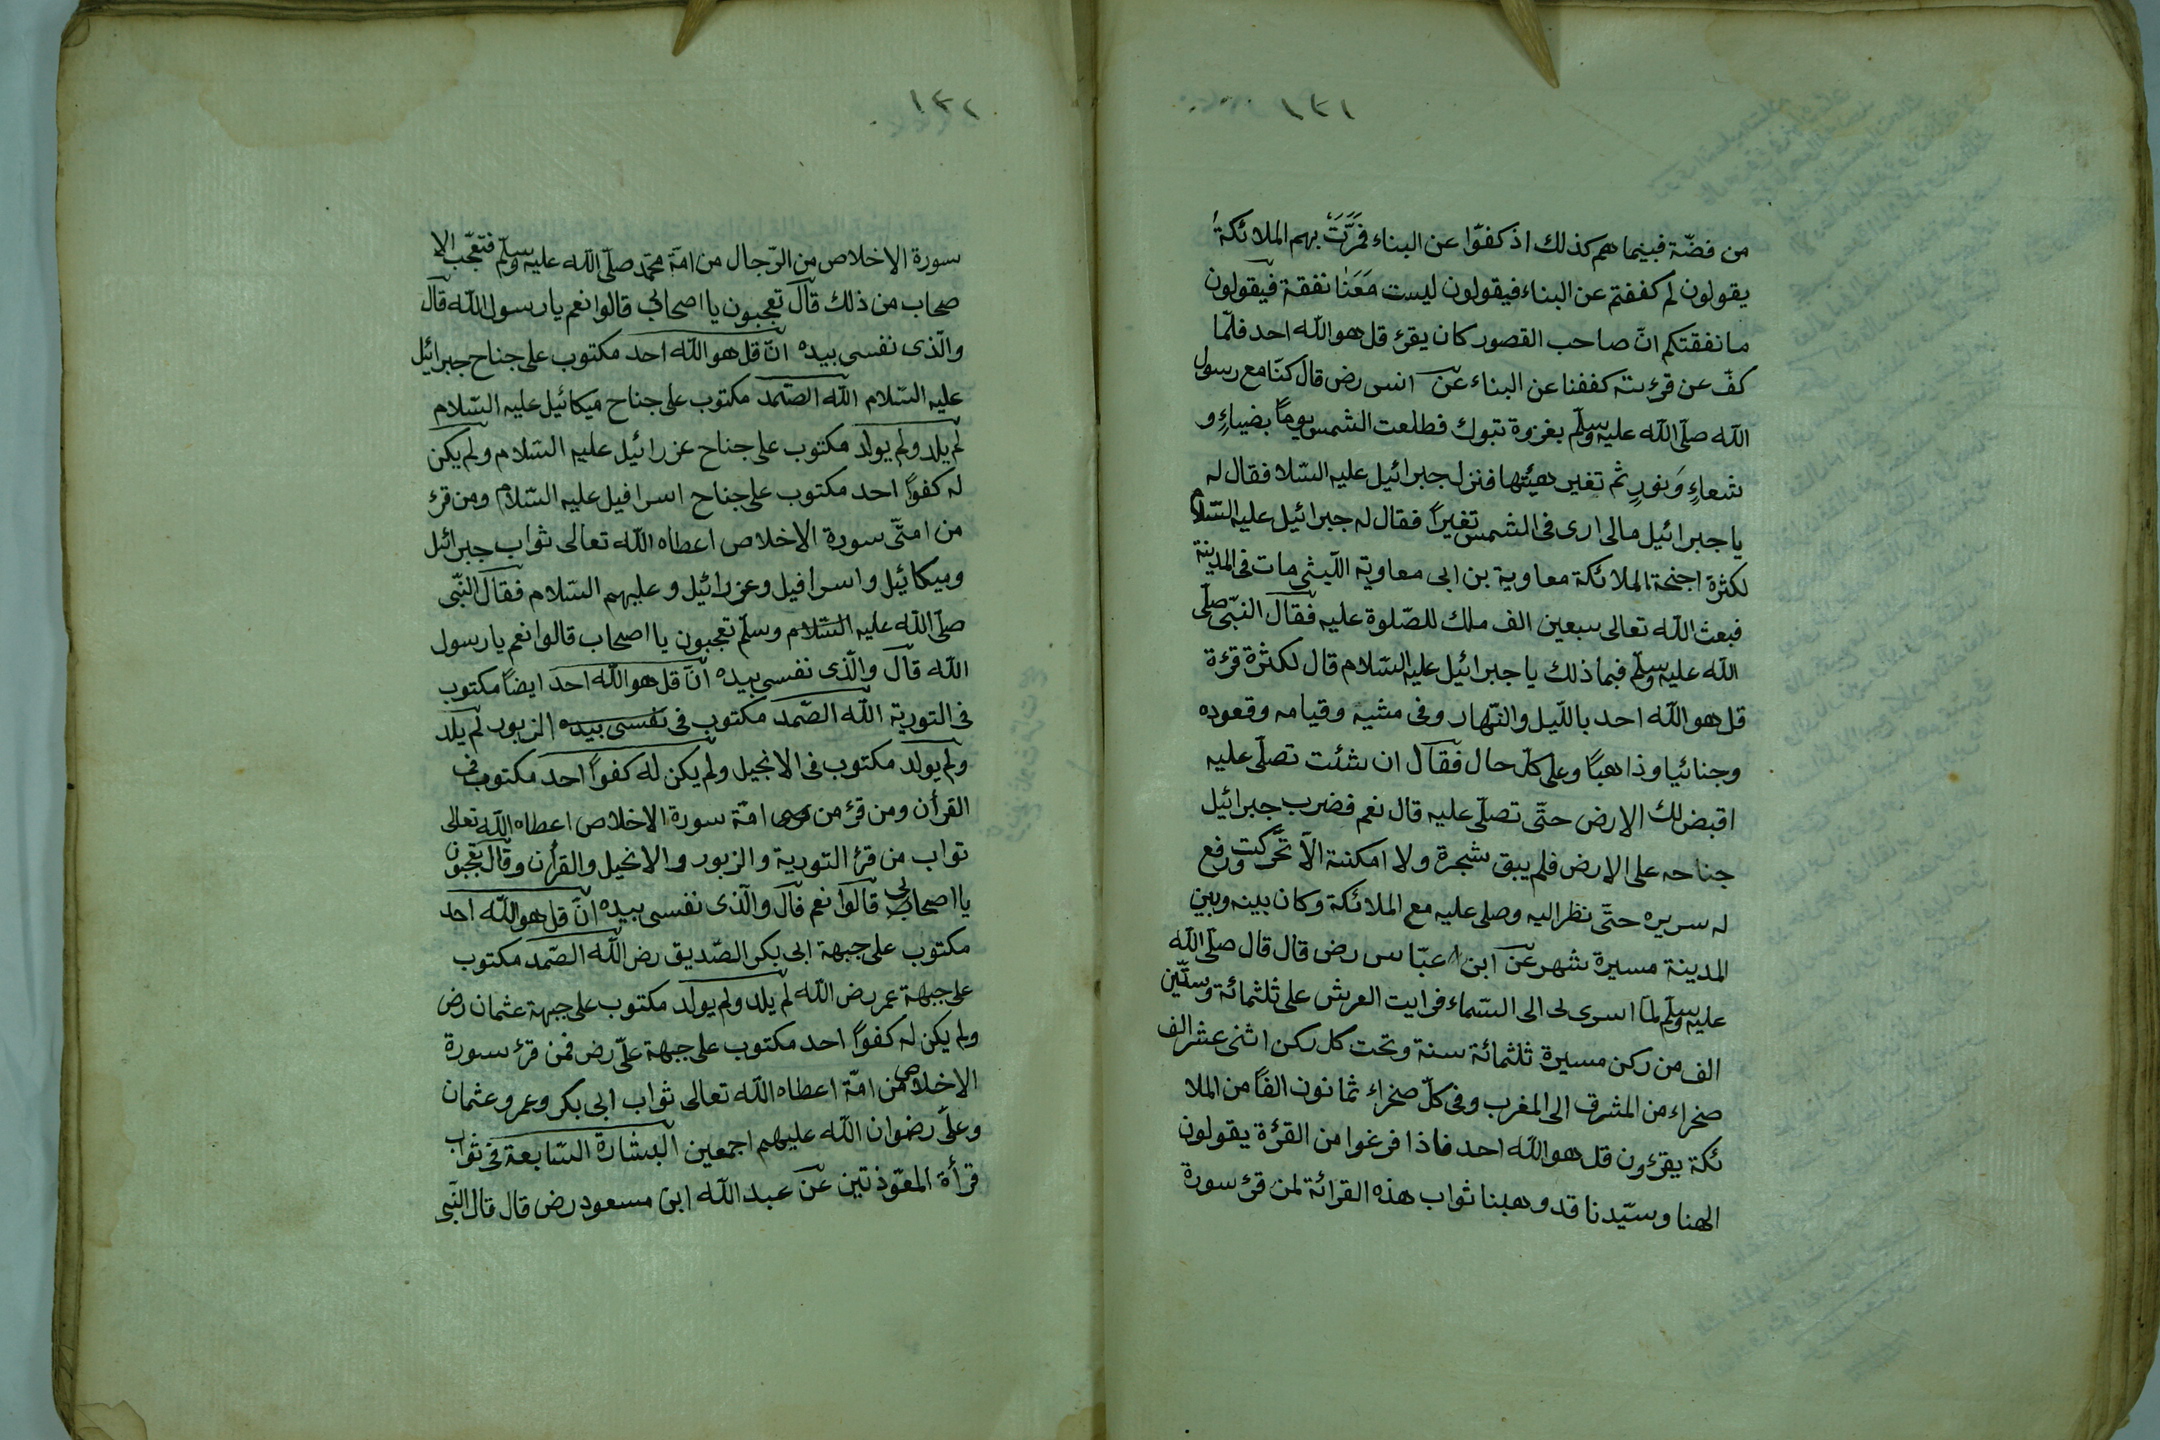 ١٣١
من فضّة فبينما هم كذلك اذ كفوّا عن البناء فمَرَّتَ بهم الملائكةُ
يقولون لم كففتم عن البناء فيقولون ليست مَعَنَا نفقة فيقولون
ما نفقتكم انّ صاحب القصور كان يقرئ قل هو الله احد فلمّا
كفّ عن قرءته كففنا عن البناء عن انس رض قال كنّا مع رسول
الله صلّى الله عليه وسلّم بغزوة تبوك فطلعت الشمس يومًا بضياءٍ و
شعاءٍ وَنورٍ ثم تغير هيئتها فنزل جبرائيل عليه السّلا فقال له
يا جبرائيل مالى ارى فى الشمس تغيرًا فقال له جبرائيل عليه السّلام
لكثرة اجنحة الملائكة معاوية بن ابى معاوية اللّيثى مات فى المدينة
فبعث الله تعالى سبعين الف ملك للصّلوة عليه فقال النبّى صلّى
الله عليه وسلّم فبما ذلك يا جبرائيل عليه السّلام قال لكثرة قرءة
قل هو الله احد باللّيل والنّهار وفى مشيه وقيامه وقعوده
وجنائيا وذاهبًا وعلى كلّ حال فقال ان شئت تصلّى عليه
اقبض لك الارض حتّى تصلّى عليه قال نعم فضرب جبرائيل
جناحه على الارض فلم يبق شجرة ولا امكنة الّا تحّركت ورفع
له سريره حتّى نظر اليه وصلى عليه مع الملائكة وكان بينه وبين
المدينة مسيرة شهر عن ابن عبّاس رض قال قال صلّى الله
عليه وسلّم لمّا اسرى لى الى السّماء فرايت العرش على ثلثمائة وستّين
الف من ركن مسيرة ثلثمائة سنة وتحت كل ركن اثنى عشر الف
صخراء من المشرق الى المغرب وفى كلّ صخراء ثمانون الفًا من الملا
ئكة يقرءون قل هو الله احد فاذا فرغوا من القرءة يقولون
الهنا وسيّدنا قد وهبنا ثواب هذه القرائة لمن قرئ سورة
١٣٢
سورة الاخلاص من الرّجال من امّة محمّد صلّى الله عليه وسلّم فتعجّب الا
صحاب من ذلك قال تعجبون يا اصحابى قالوا نعم يا رسول الله قال
والّذى نفسى بيده انّ قل هو الله احد مكتوب على جناح جبرائيل
عليه السّلام الله الصّمد مكتوب على جناح ميكائيل عليه السّلام
لم يلد ولم يولد مكتوب على جناح عزرائيل عليه السّلام ولم يكن
له كفوًا احد مكتوب على جناح اسرافيل عليه السّلام ومن قرء
من امتّى سورة الاخلاص اعطاه الله تعالى ثواب جبرائيل
وميكائيل واسرافيل وعزرائيل وعليهم السّلام فقال النبّى
صلّى الله عليه السّلام وسلّم تعجبون يا اصحاب قالوا نعم يا رسول
الله قال والّذى نفسى بيده انّ قل هو الله احد ايضًا مكتوب
فى التورية الله الصّمد مكتوب فى نفسى بيده الزبور لم يلد
ولم يولد مكتوب فى الانجيل ولم يكن له كفوًا احد مكتوب فى
القرأن ومن قرء من امّة سورة الاخلاص اعطاه الله تعالى
ثواب من قرء التورية والزبور والانجيل والقرأن وقال تعجبون
يا اصحابى قالوا نعم قال والّذى نفسى بيده انّ قل هو الله احد
مكتوب على جبهة ابى بكر الصّديق رض الله الصّمد مكتوب
على جبهة عمر رض الله لم يلد ولم يولد مكتوب على جبهة عثمان رض
ولم يكن له كفوًا احد مكتوب على جبهة علىّ رض فمن قرء سورة
الاخلاص من امّة اعطاه الله تعالى ثواب ابى بكر وعمر وعثمان
وعلىّ رضوان الله عليهم اجمعين البشارة السّابعة فى ثواب
قرأة المعّوذتين عن عبد الله ابن مسعود رض قال قال النّبى